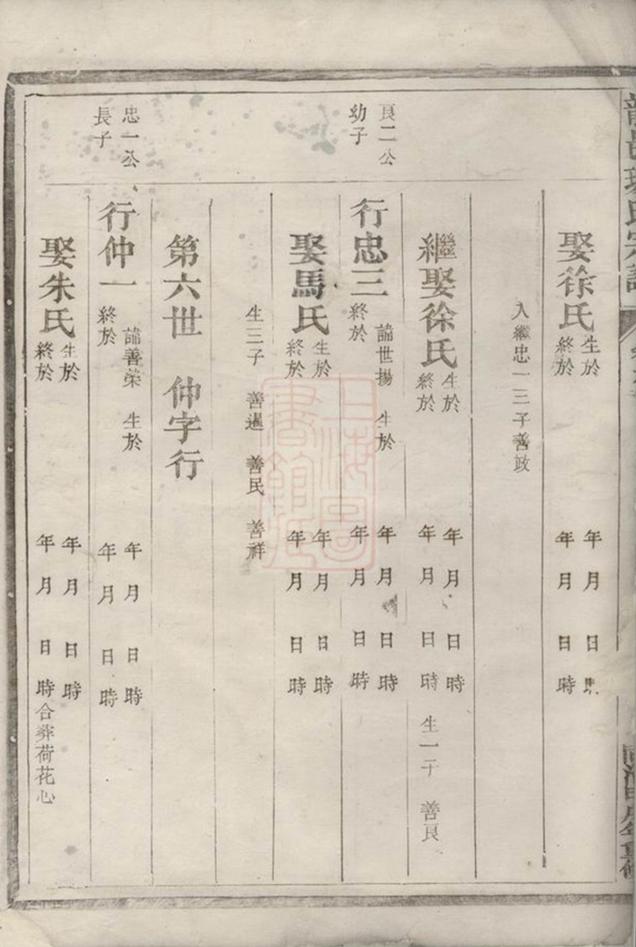 娶徐氏 生於 年 月 日 時
終於 年 月 日 時
入繼忠一三子善政
繼娶徐氏 生於 年 月 日 時
終於 年 月 日 時 生一子 善良
良二公
幼子
行忠三 諱世揚 生於 年 月 日 時
終於 年 月 日 時
娶馬氏 生於 年 月 日 時
終於 年 月 日 時
生三子 善暹 善民 善祥
第六世 仲字行
忠一公
長子
行仲一 諱善榮 生於 年 月 日 時
終於 年 月 日 時
娶朱氏 生於 年 月 日 時
終於 年 月 日 時 合葬荷花心